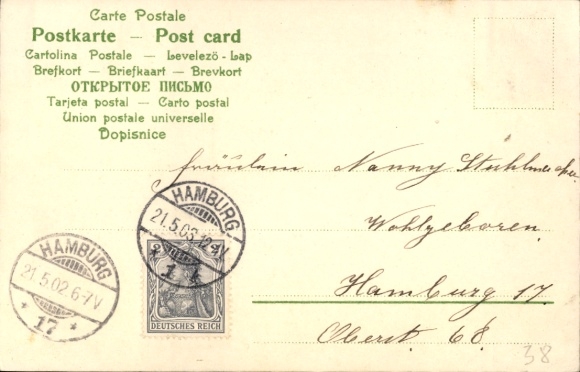 Carte Postale
Postkarte — Post card
Cartolina Postale — Levelező-Lap
Brefkort — Briefkaart — Brevkort
ОТКРЫТОЕ ПИСЬМО
Tarjeta postal — Carto postal
Union postale universelle
Dopisnice
Fräulein Nanny
Wohlgeboren.
Hamburg 17.
Oberst. 68.
38
HAMBURG
21.5.03.12-V
* 1 1
DEUTSCHES REICH
HAMBURG
21.5.02.6-7V
* 17 *